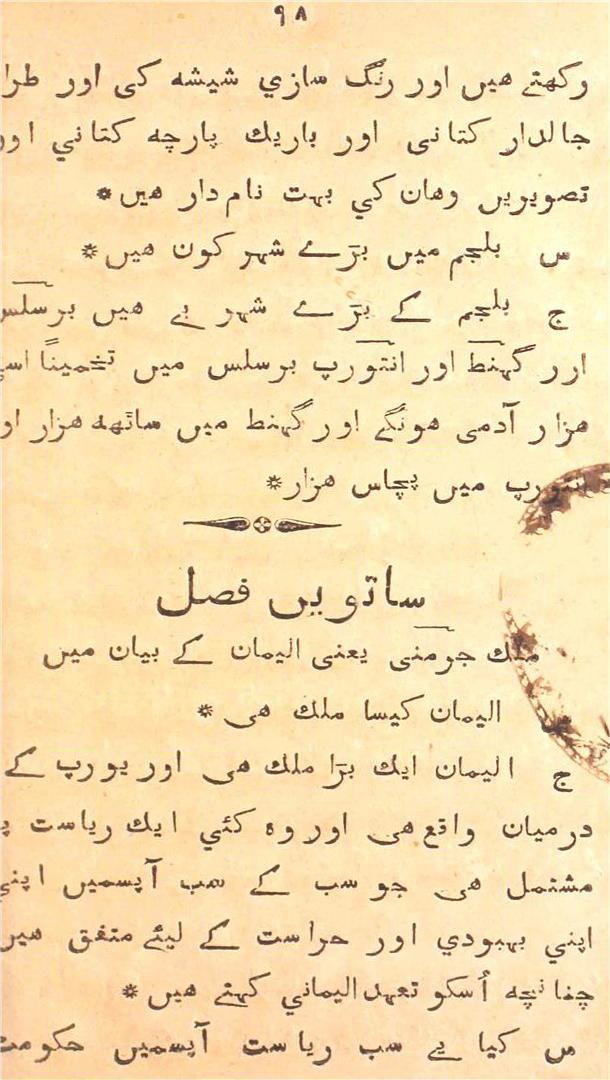 ۹۸
رکھتے هیں اور رنگ سازي شیشه کی اور طرا
جالدار کتانی اور باریك پارچه کتاني اور
تصویریں وهان کي بہت نام دار هیں*
س بلجم میں بڑے شہر کون هیں*
ج بلجم کے بڑے شہر یے هیں برسلس
ارر گہنط اور انتورپ برسلس میں تخمیناً اسي
هزار آدمی هونگے اور گہنط میں ساٹھه هزار او
انتورپ میں پچاس هزار*
ساتویں فصل
ملك جرمنی یعنی الیمان کے بیان میں
س الیمان کیسا ملك هی *
ج الیمان ایك بڑا ملك هی اور یورپ کے
درمیان واقع هی اور وہ کئي ایك ریاست پ
مشتمل هی جو سب کے سب آپسمیں اپني
اپني بہبودي اور حراست کے لیئے متفق هیں
چنانچه اُسکو تعہد الیماني کہتے هیں*
س کیا یے سب ریاست آپسمیں حکومت